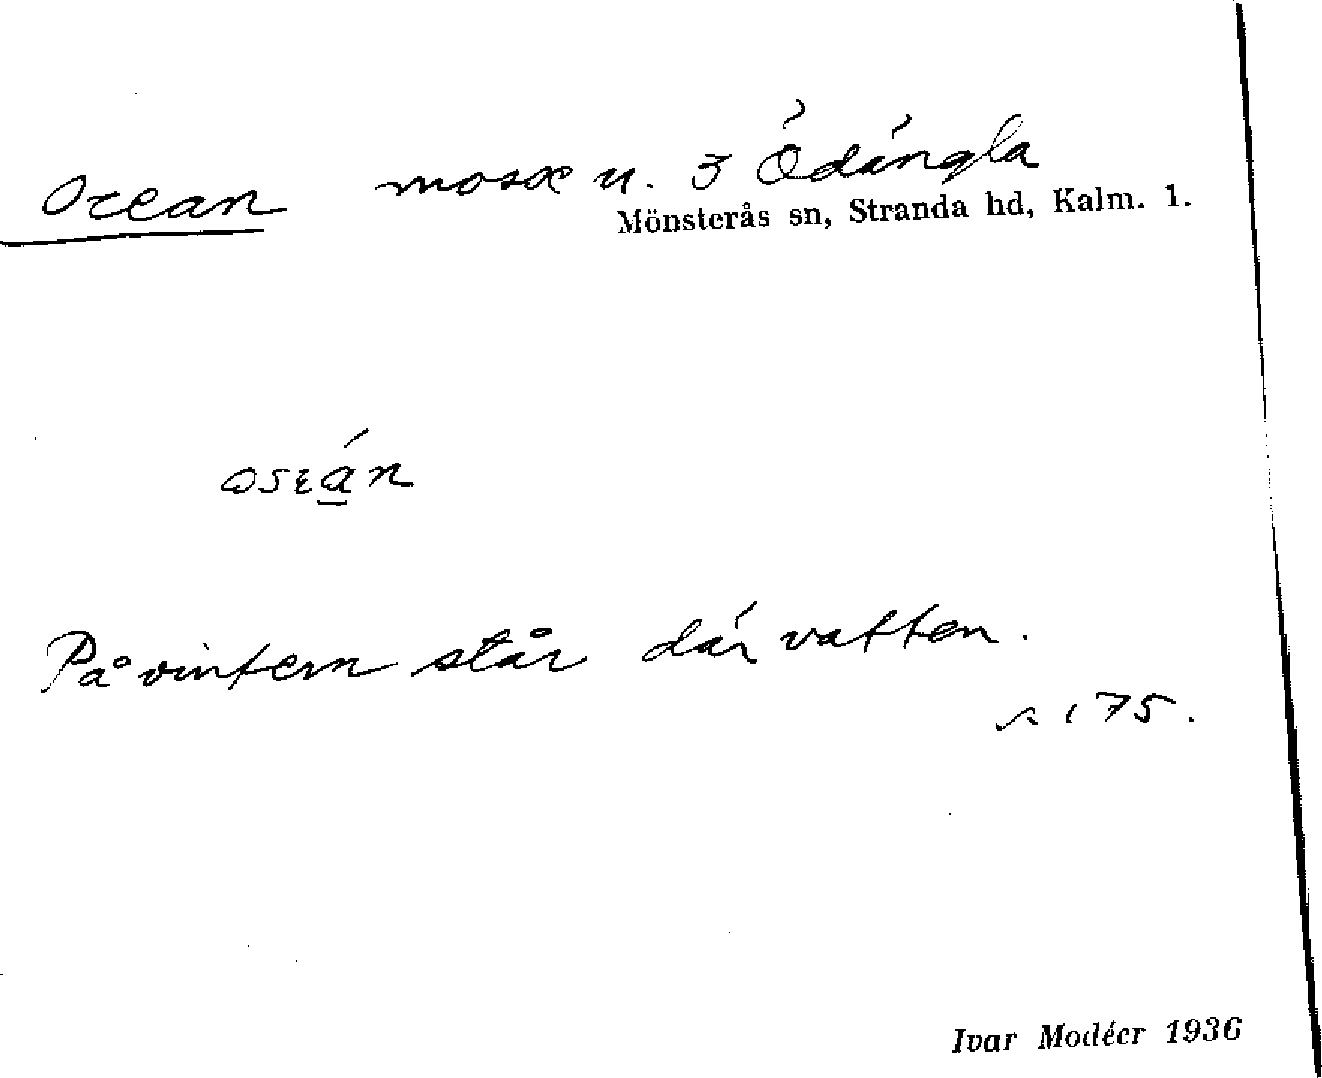 Ocean mosse u. 3 Ödängla
Mönsterås sn, Stranda hd, Kalm. l.
oseán
På vintern står där vatten.
s 175.
Ivar Modéer 1936